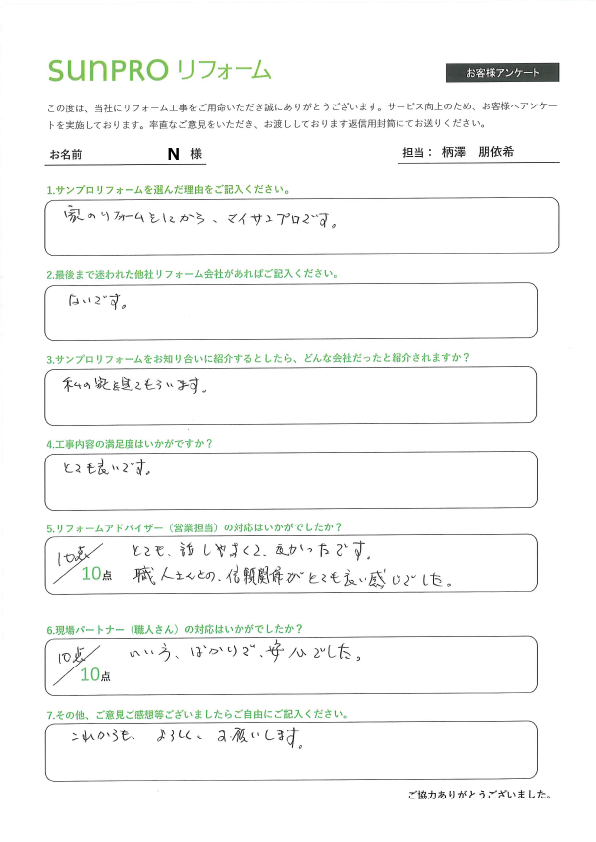 sunPRO リフォーム
お客様アンケート
この度は、当社にリフォーム工事をご用命いただき誠にありがとうございます。サービス向上のため、お客様へアンケー
トを実施しております。率直なご意見をいただき、お渡ししております返信用封筒にてお送りください。
お名前 N 様
担当： 柄澤 朋依希
1.サンプロリフォームを選んだ理由をご記入ください。
家のリフォームをしたから、マイサンプロです。
2.最後まで迷われた他社リフォーム会社があればご記入ください。
ないです。
3.サンプロリフォームをお知り合いに紹介するとしたら、どんな会社だったと紹介されますか？
私の家を見てもらいます。
4.工事内容の満足度はいかがですか？
とても良いです。
5.リフォームアドバイザー（営業担当）の対応はいかがでしたか？
10点/10点
とても、話しやすくて、良かったです。
職人さんとの、信頼関係がとても良い感じでした。
6.現場パートナー（職人さん）の対応はいかがでしたか？
10点/10点
いい方、ばかりで、安心でした。
7.その他、ご意見ご感想等ございましたらご自由にご記入ください。
これからも、よろしく、お願いします。
ご協力ありがとうございました。